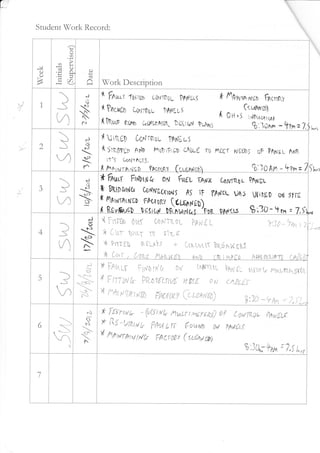 Student Work Record:
Week
Initials (Supervisor)
Date
Work Description
1
SW
* FAULT TESTED CONTROL PANELS * MAINTAINED FACTORY
(CLEANED)
* PACKED CONTROL PANELS * OH+S
8:30AM - 4PM = 7.5hrs
2
SW
3/6/2012
* WIRED CONTROL PANELS
* STRIPPED AND MODIFIED CABLE TO MEET NEEDS OF PANEL AND
IT'S CONTROLS.
* MAINTAINED FACTORY (CLEANED) 8:30AM - 4PM = 7.5hrs
3
SW
10/6/2012
* FAULT FINDING ON FUEL TANK CONTROL PANEL
* BRIDGING CONNECTIONS AS IF PANEL WAS WIRED ON SITE
* MAINTAINED FACTORY (CLEANED)
* REVIEWED DESIGN DRAWINGS FOR PANELS 8:30 - 4PM = 7.5hrs
4
SW
17/6/2012
CONTROL PANEL
* CUT DUCT TO SIZE
* WIRED RELAYS + CIRCUIT BREAKERS
5
SW
* FAULT FINDING ON CONTROL PANEL USING MULTIMETER
* FITTING PROTECTIVE HOSE ON CABLES
* MAINTAINED FACTORY (CLEANED)
8:30 - 4PM = 7.5hrs
6
SW
* TESTING - (USING MULTIMETERS) OF CONTROL PANELS
* RE-WIRING FAULTS FOUND IN PANELS
* MAINTAINING FACTORY (CLEANED)
8:30 - 4PM = 7.5hrs
7